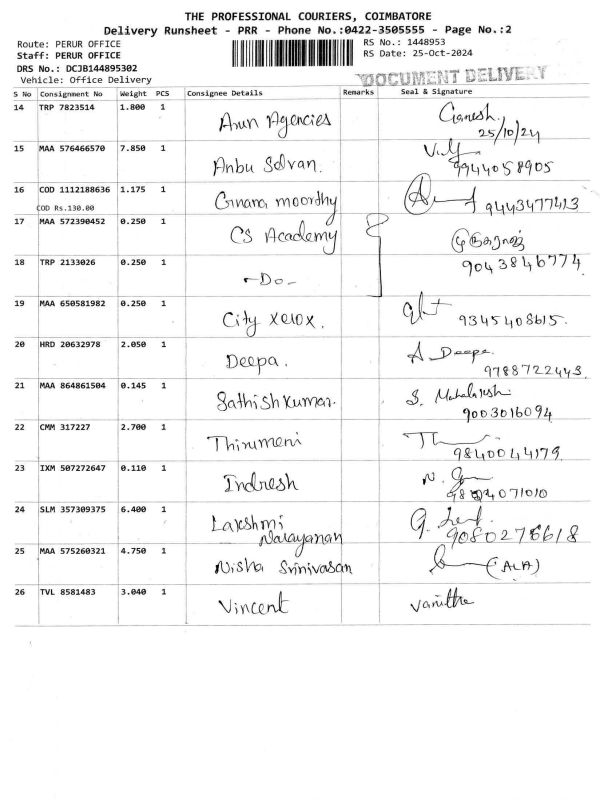 THE PROFESSIONAL COURIERS, COIMBATORE
Delivery Runsheet - PRR - Phone No.:0422-3505555 - Page No.:2
Route: PERUR OFFICE RS No.: 1448953
Staff: PERUR OFFICE RS Date: 25-Oct-2024
DRS No.: DCJB144895302
Vehicle: Office Delivery DOCUMENT DELIVERY
S No Consignment No Weight PCS Consignee Details Remarks Seal & Signature
14 TRP 7823514 1.800 1 Arun Agencies Ganesh.
25/10/24
15 MAA 576466570 7.850 1 Anbu Selvan.
9944058905
16 COD 1112188636 1.175 1 Gnana moorthy 9443477413
COD Rs.130.00
17 MAA 572390452 0.250 1 CS Academy
18 TRP 2133026 0.250 1 -Do- 9043846774
19 MAA 650581982 0.250 1 City xerox. 9345408615.
20 HRD 20632978 2.050 1 Deepa. A Deepa.
9788722443.
21 MAA 864861504 0.145 1 Sathish kumar. S.
9003016094
22 CMM 317227 2.700 1 Thirumeni
9840044179
23 IXM 507272647 0.110 1 Indresh N.
24 SLM 357309375 6.400 1 Lakshmi G.
Narayanan 9080276618
25 MAA 575260321 4.750 1 Nisha Srinivasan (ALA)
26 TVL 8581483 3.040 1 Vincent Vanitha